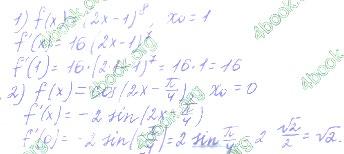 1) f(x) = (2x-1)⁸, x₀ = 1
f'(x) = 16(2x-1)⁷
f'(1) = 16·(2·1-1)⁷ = 16·1 = 16
2) f(x) = cos(2x - π/4), x₀ = 0
f'(x) = -2 sin(2x - π/4)
f'(0) = -2 sin(-π/4) = 2 sin π/4 = 2 √2/2 = √2.
4book.org